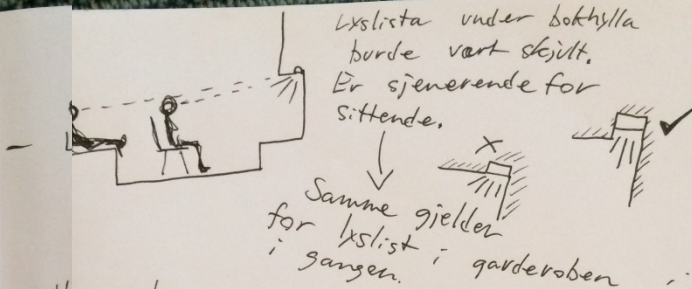 Lyslista under bokhylla
burde vært skjult.
Er sjenerende for
sittende.
Samme gjelder
for lyslist i garderoben
i gangen.